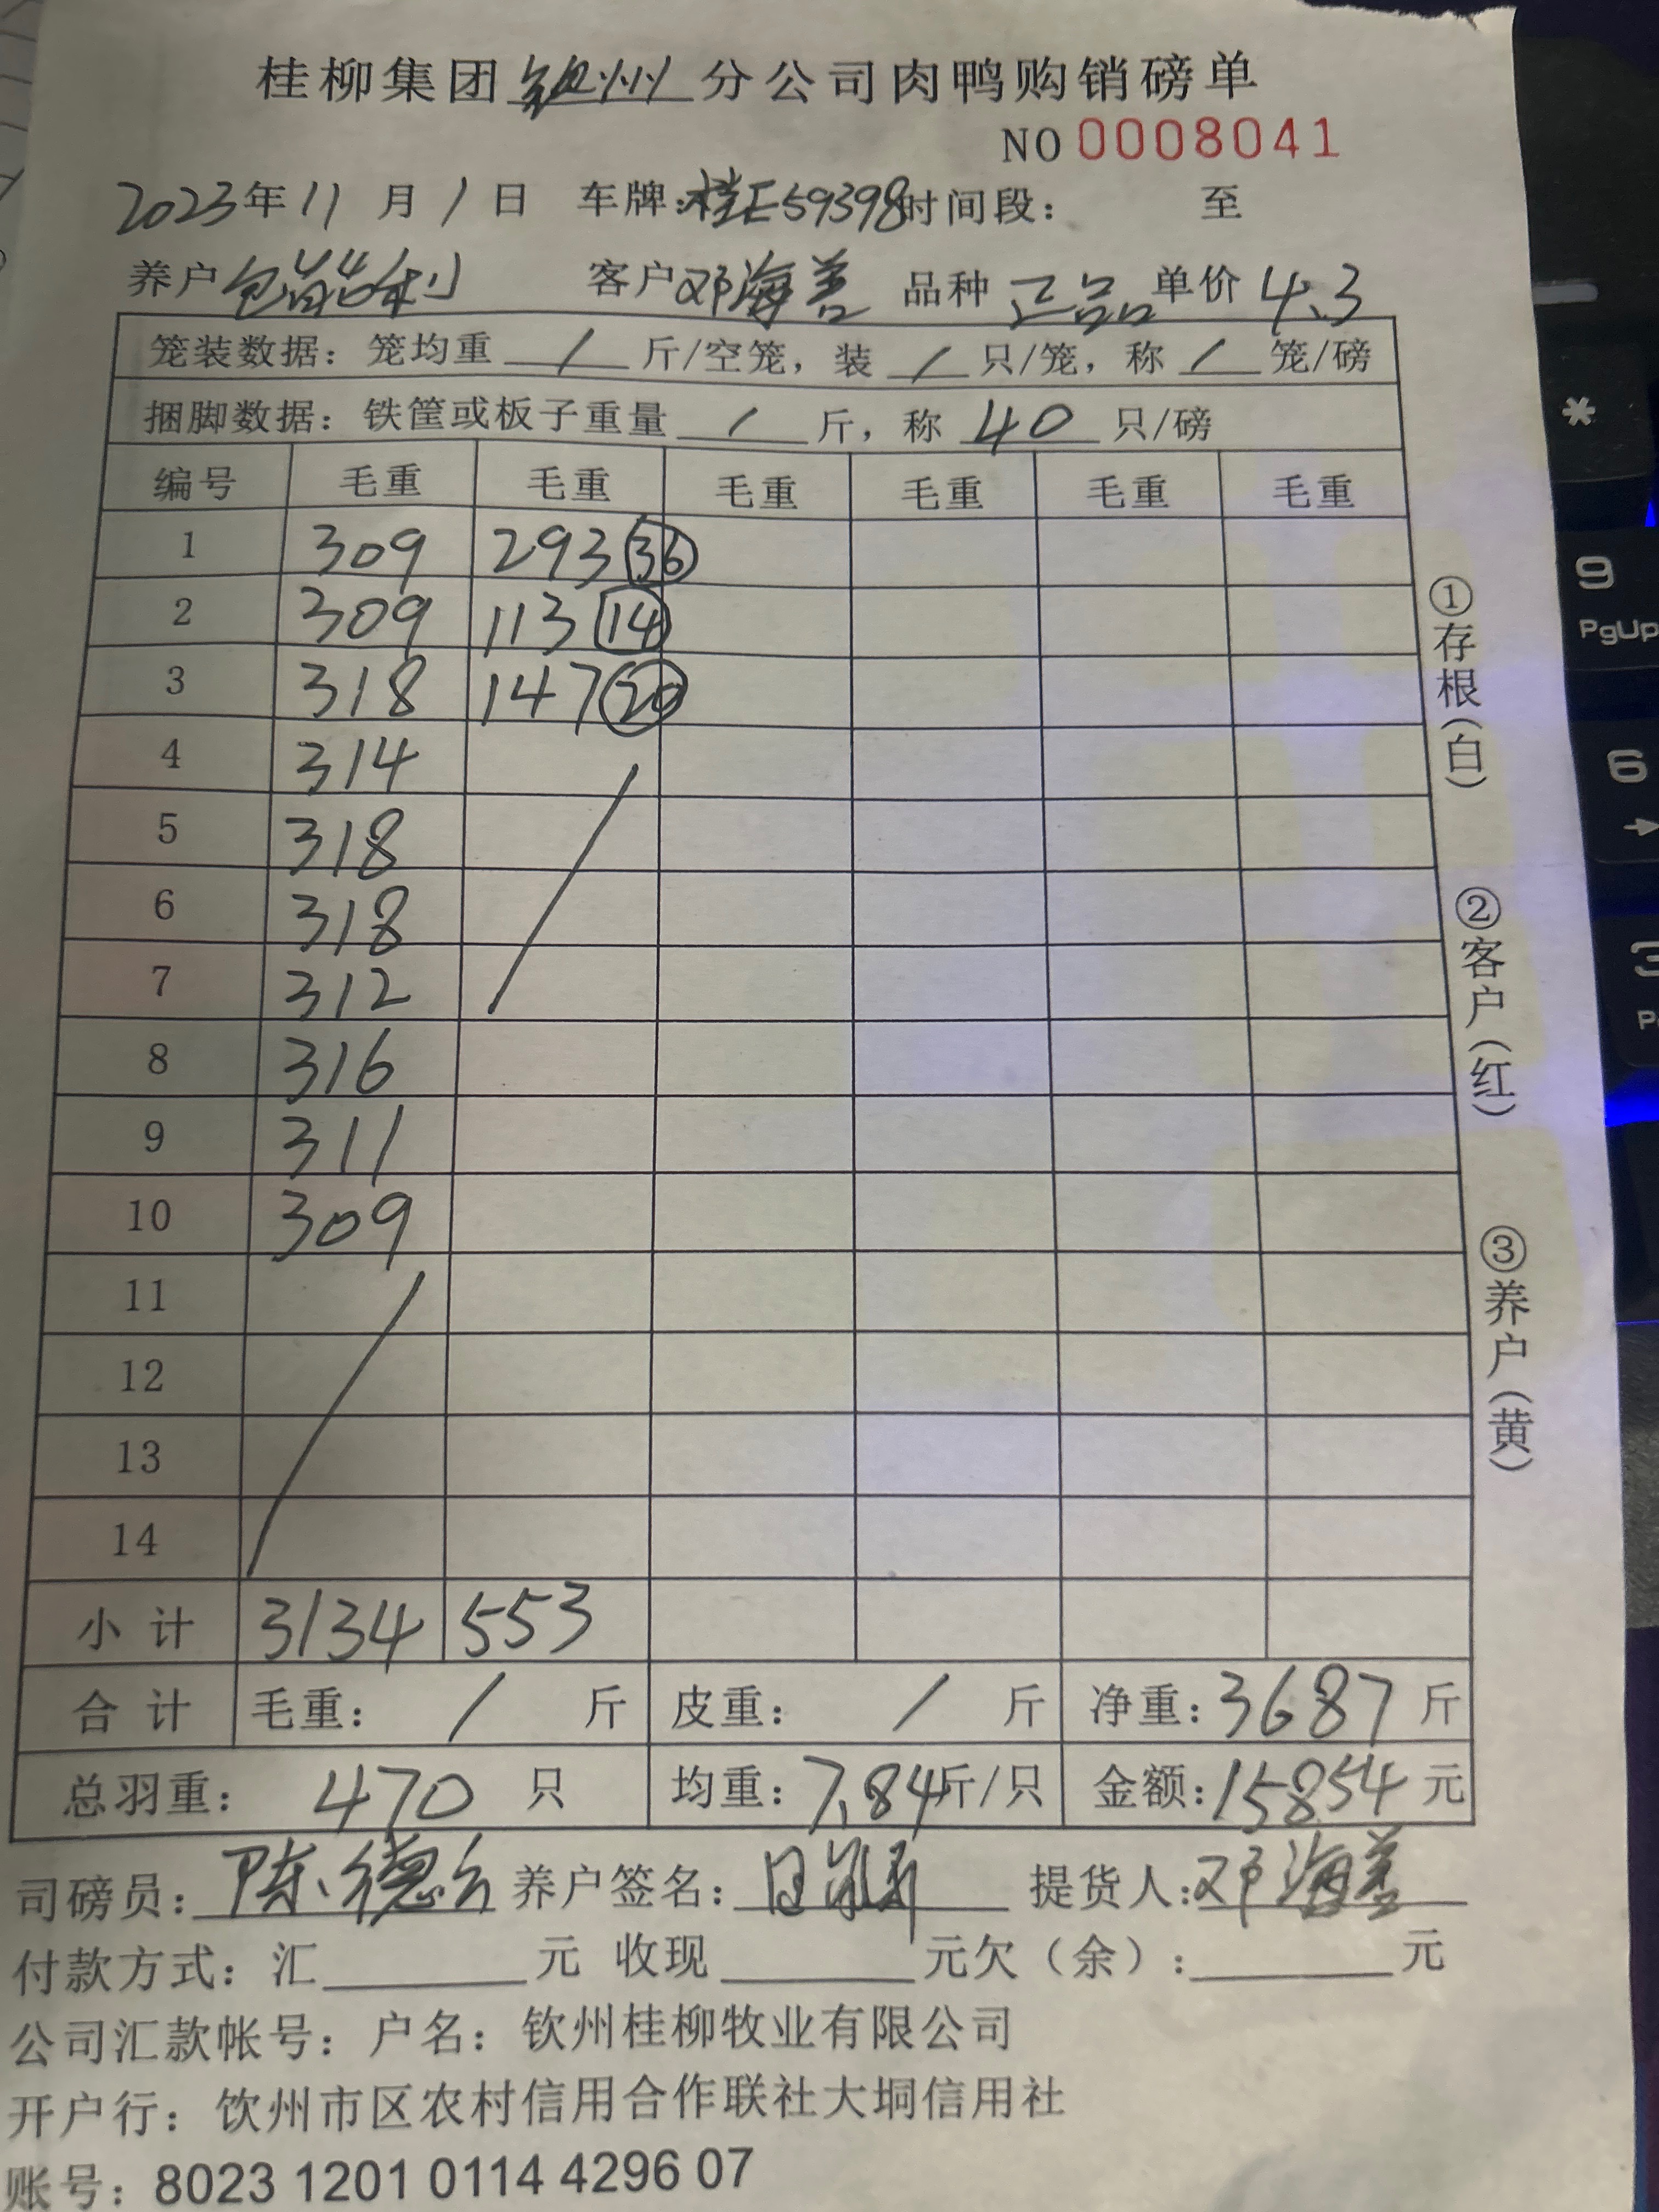 桂柳集团钦州分公司肉鸭购销磅单
NO 0008041
2023年11月1日 车牌:桂E59398时间段: 至
养户 客户邓海善 品种正品单价4.3
笼装数据: 笼均重 / 斤/空笼, 装 / 只/笼, 称 / 笼/磅
捆脚数据: 铁筐或板子重量 / 斤, 称 40 只/磅
编号 毛重 毛重 毛重 毛重 毛重 毛重
1 309 293 36
2 309 113 14
3 318 147 20
4 314
5 318
6 318
7 312
8 316
9 311
10 309
11
12
13
14
小计 3134 553
合计 毛重: / 斤 皮重: / 斤 净重: 3687 斤
总羽重: 470 只 均重: 7.84斤/只 金额: 15854 元
司磅员: 陈德 养户签名: 提货人: 邓海善
付款方式: 汇 元 收现 元欠(余): 元
公司汇款帐号: 户名: 钦州桂柳牧业有限公司
开户行: 钦州市区农村信用合作联社大垌信用社
账号: 8023 1201 0114 4296 07
①存根(白)
②客户(红)
③养户(黄)
*
9
PgUp
6
→
3